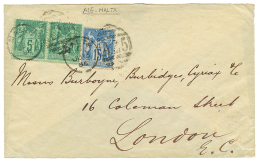 ALG-MALTA
5
15
Messrs Burboyne, Burbidges, Cyriax & Co
16 Coleman Street
London
E.C.